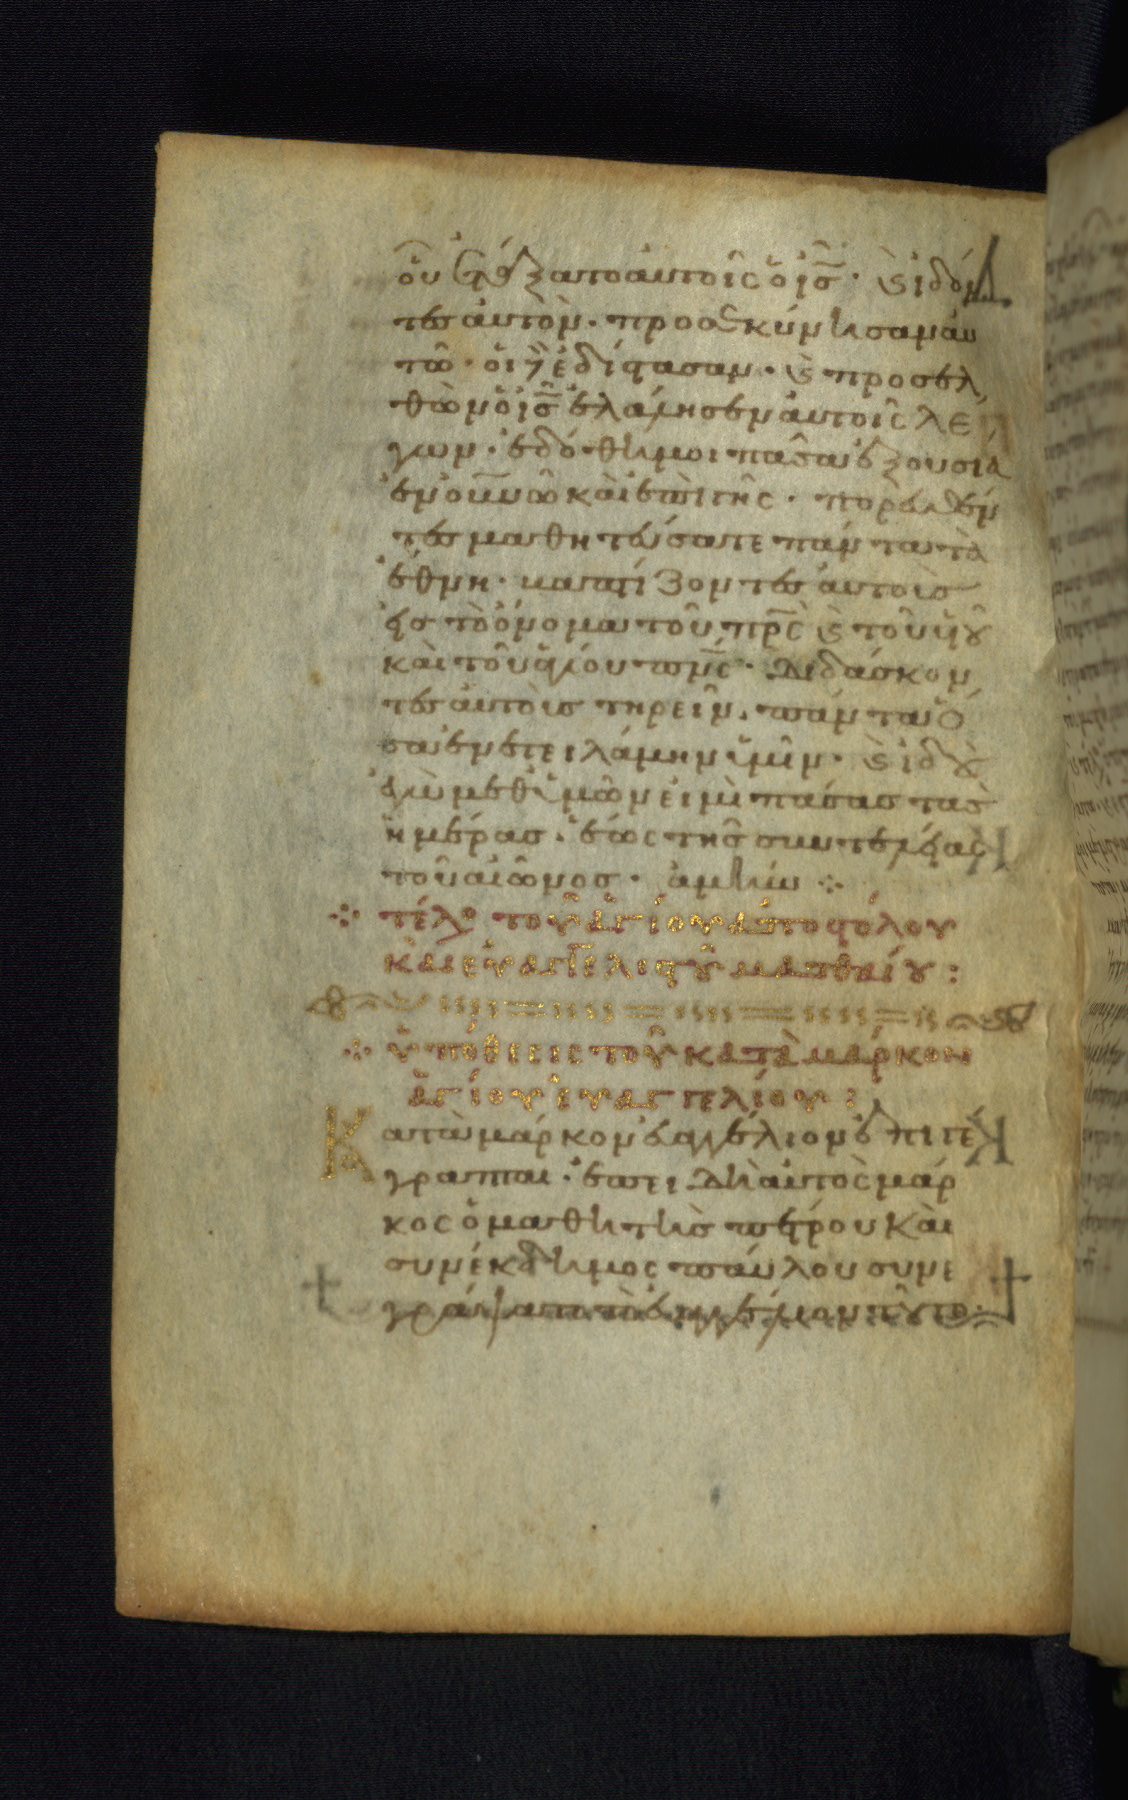 οὗ ἐτάξατο αὐτοῖς ὁ ις̅· καὶ ἰδόν
τες αὐτὸν· προσεκύνησαν αυ
τῶ· οἱ δὲ ἐδίστασαν· καὶ προσελ
θὼν ὁ ις̅ ἐλάλησεν αὐτοῖς λε
γων· ἐδόθη μοι πᾶσα ἐξουσία
ἐν ουνω̅ καὶ ἐπὶ γῆς· πορευθέν
τες μαθητεύσατε πάντα τὰ
ἔθνη· βαπτίζοντες αὐτοὺς
εἰς τὸ ὄνομα τοῦ πρς̅ καὶ τοῦ υἱοῦ
καὶ τοῦ ἁγίου πνς̅· διδάσκον
τες αὐτοὺς τηρεῖν· πάντα ὅ
σα ἐνετειλάμην ὑμῖν· καὶ ἰδοὺ
ἐγὼ μεθ' ὑμῶν εἰμὶ πάσας τὰς
ἡμέρας· ἕως τῆς συντελείας
τοῦ αἰῶνος· ἀμήν ⁘
⁘ τέλο τοῦ ἁγίου ἀποστόλου
καὶ εὐαγγελιστοῦ ματθαίου :
⁘ ὑπόθεσις τοῦ κατὰ μάρκον
ἁγίου εὐαγγελίου :
Κατὰ μάρκον εὐαγγέλιον ἐπιγέ
γραπται· ἐπει δὴ αὐτὸς μάρ
κος ὁ μαθητὴς πέτρου καὶ
συνέκδημος παύλου συνε
γράψατο τὸ